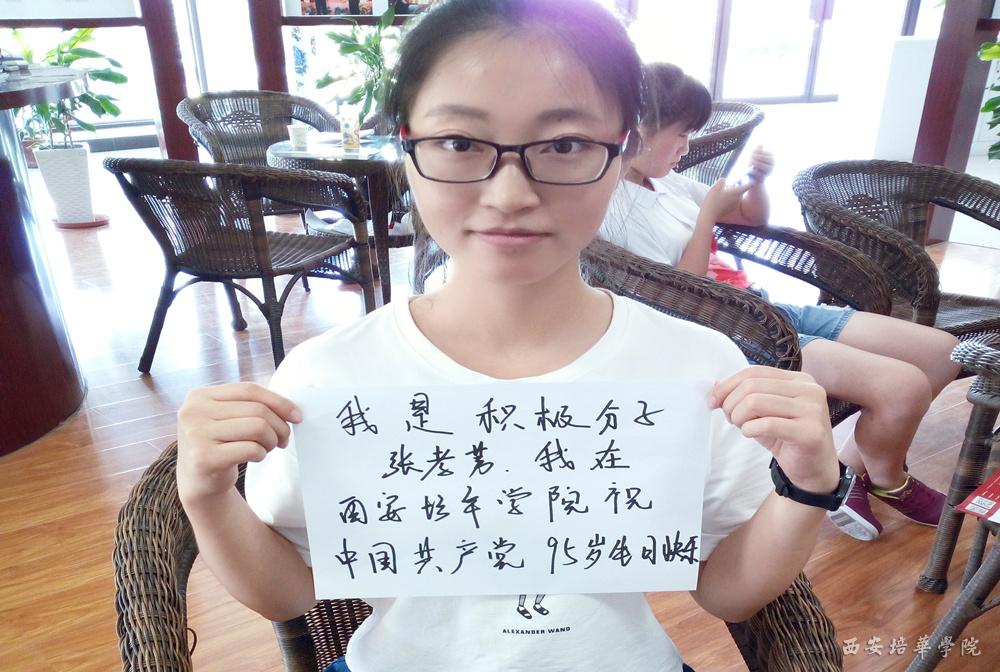 我是积极分子
张孝芳.我在
西安培华学院祝
中国共产党95岁生日快乐
ALEXANDER WANG
西安培華学院